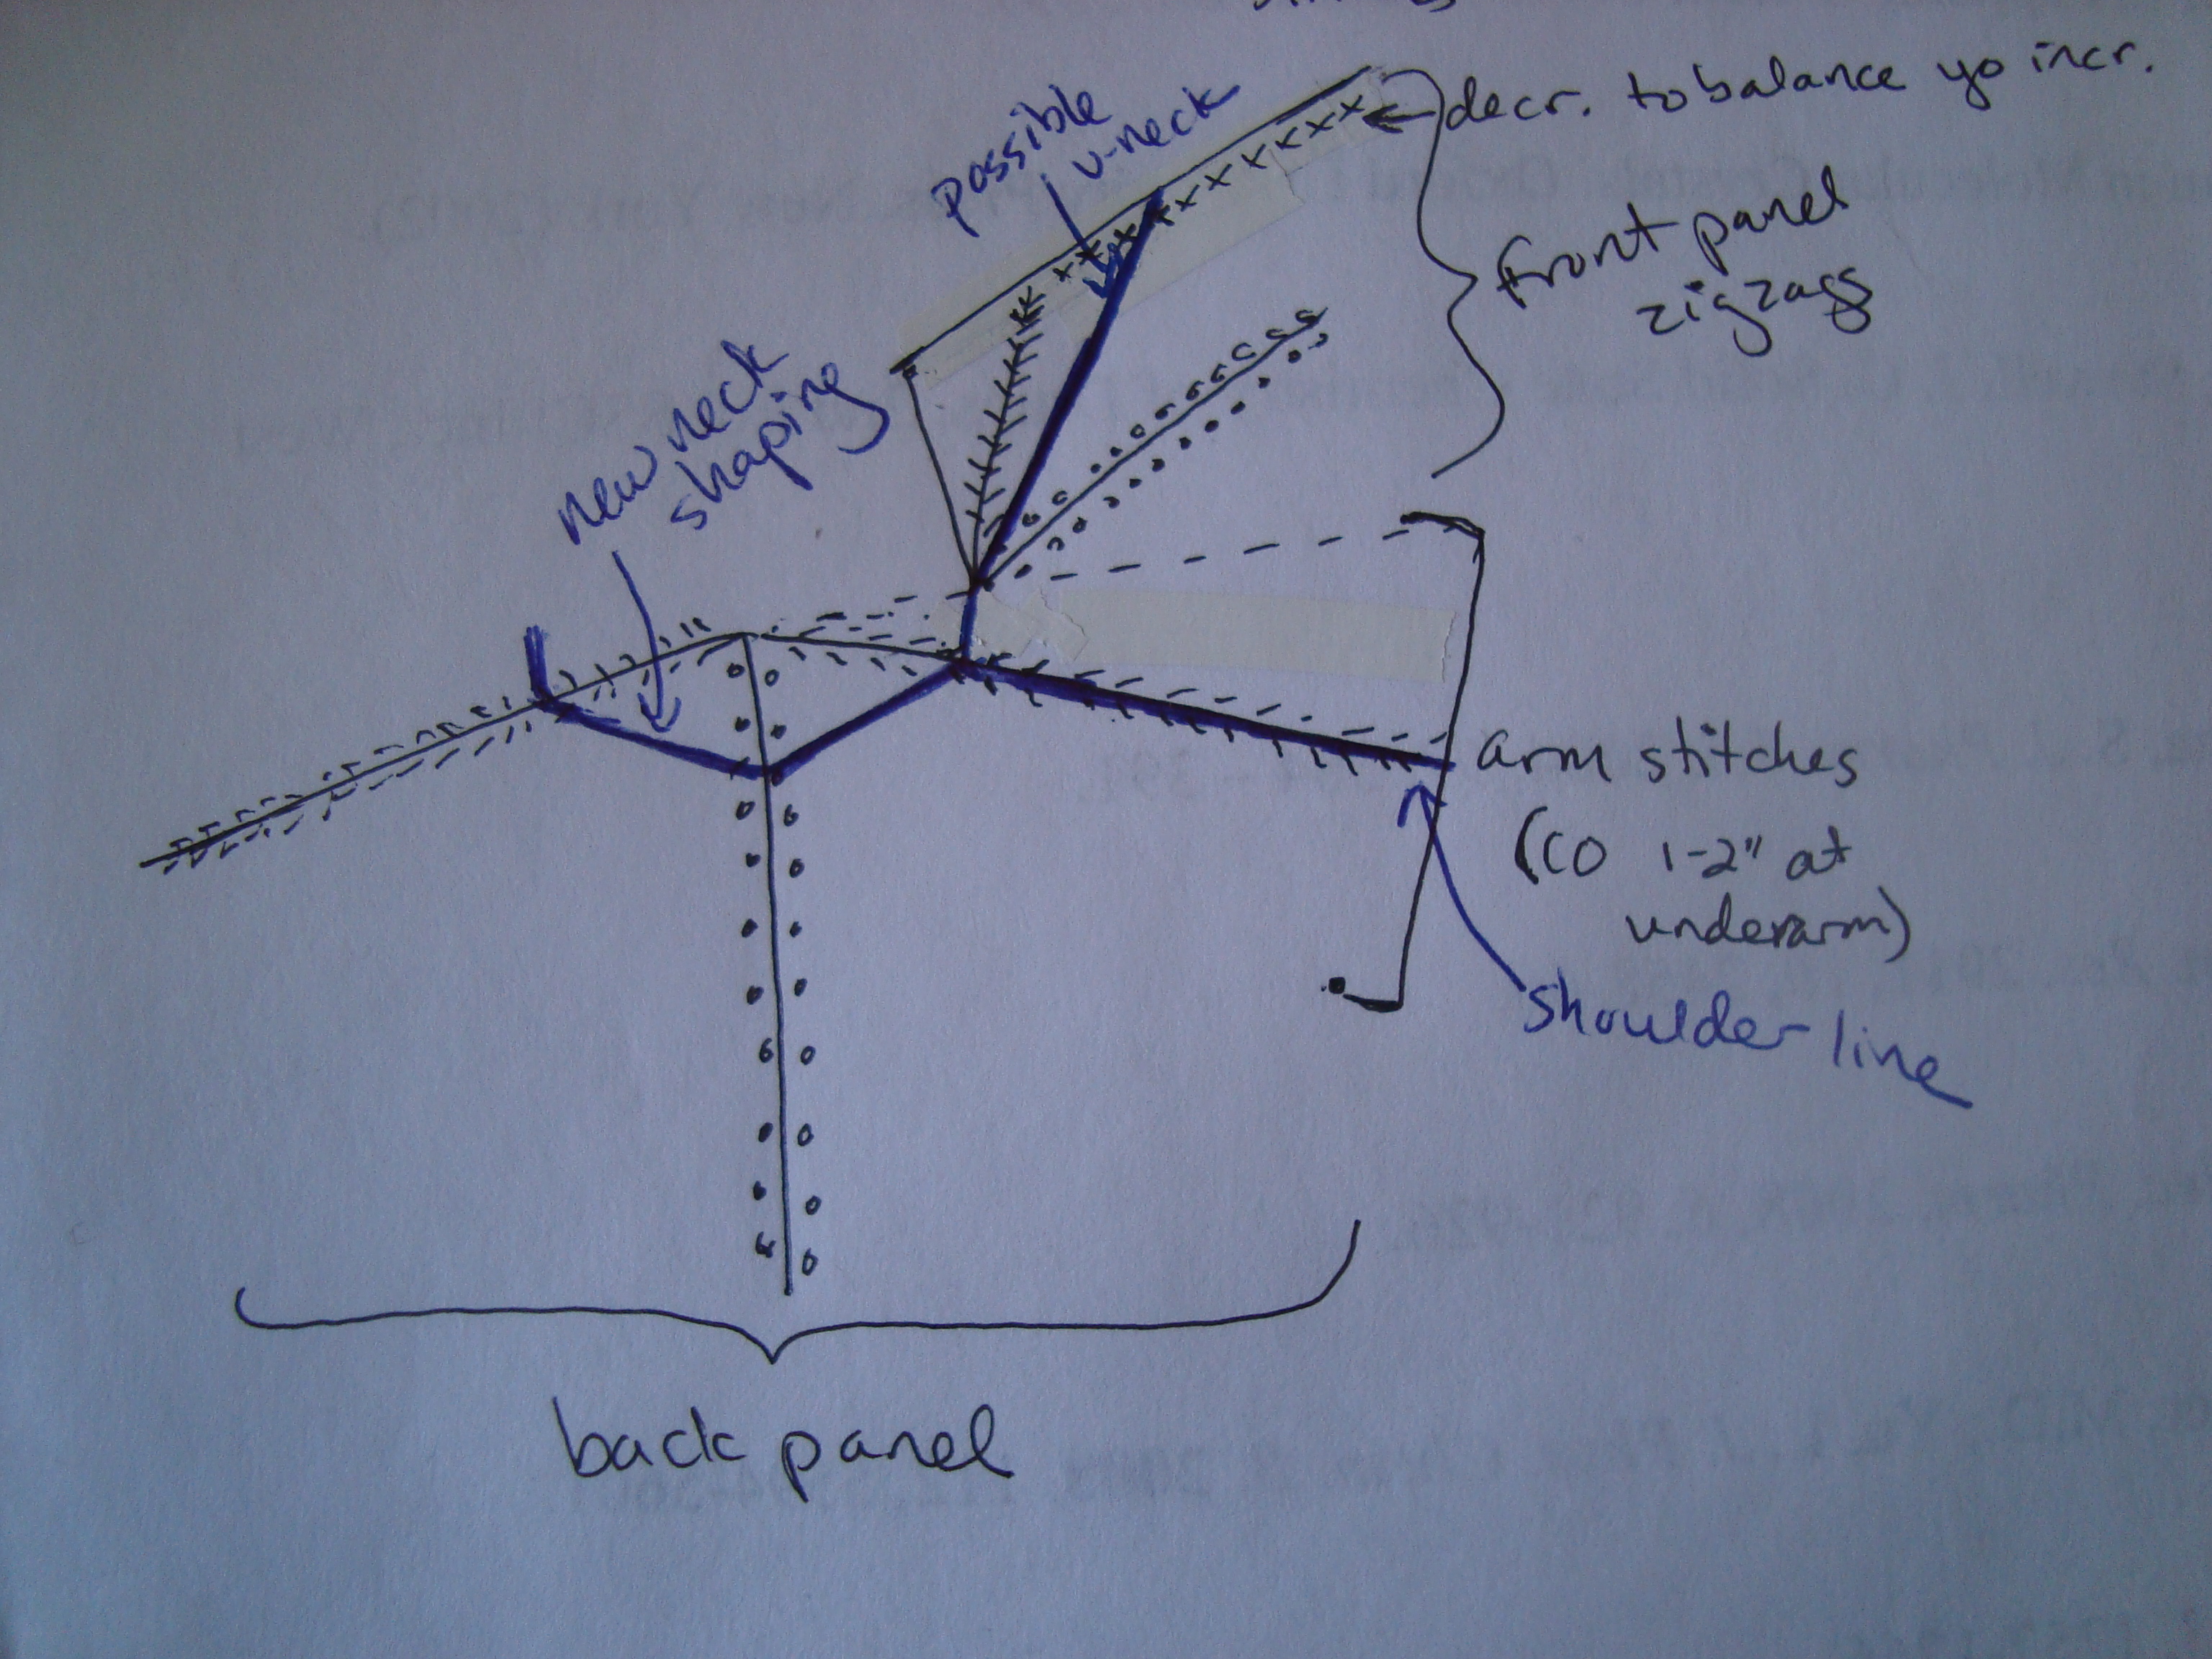 decr. to balance yo incr.
possible
v-neck
front panel
zigzags
new neck
shaping
arm stitches
(CO 1-2" at
underarm)
shoulder line
back panel